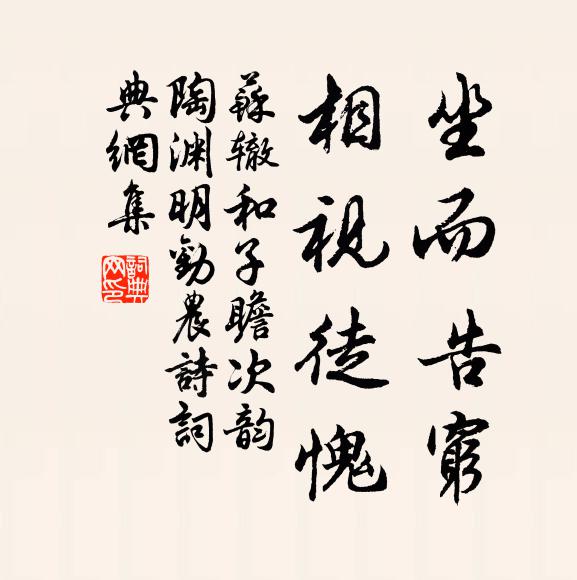 坐而告窮
相視徒愧
蘇轍和子瞻次韵
陶渊明勸農詩詞
典網集
詞典
网印